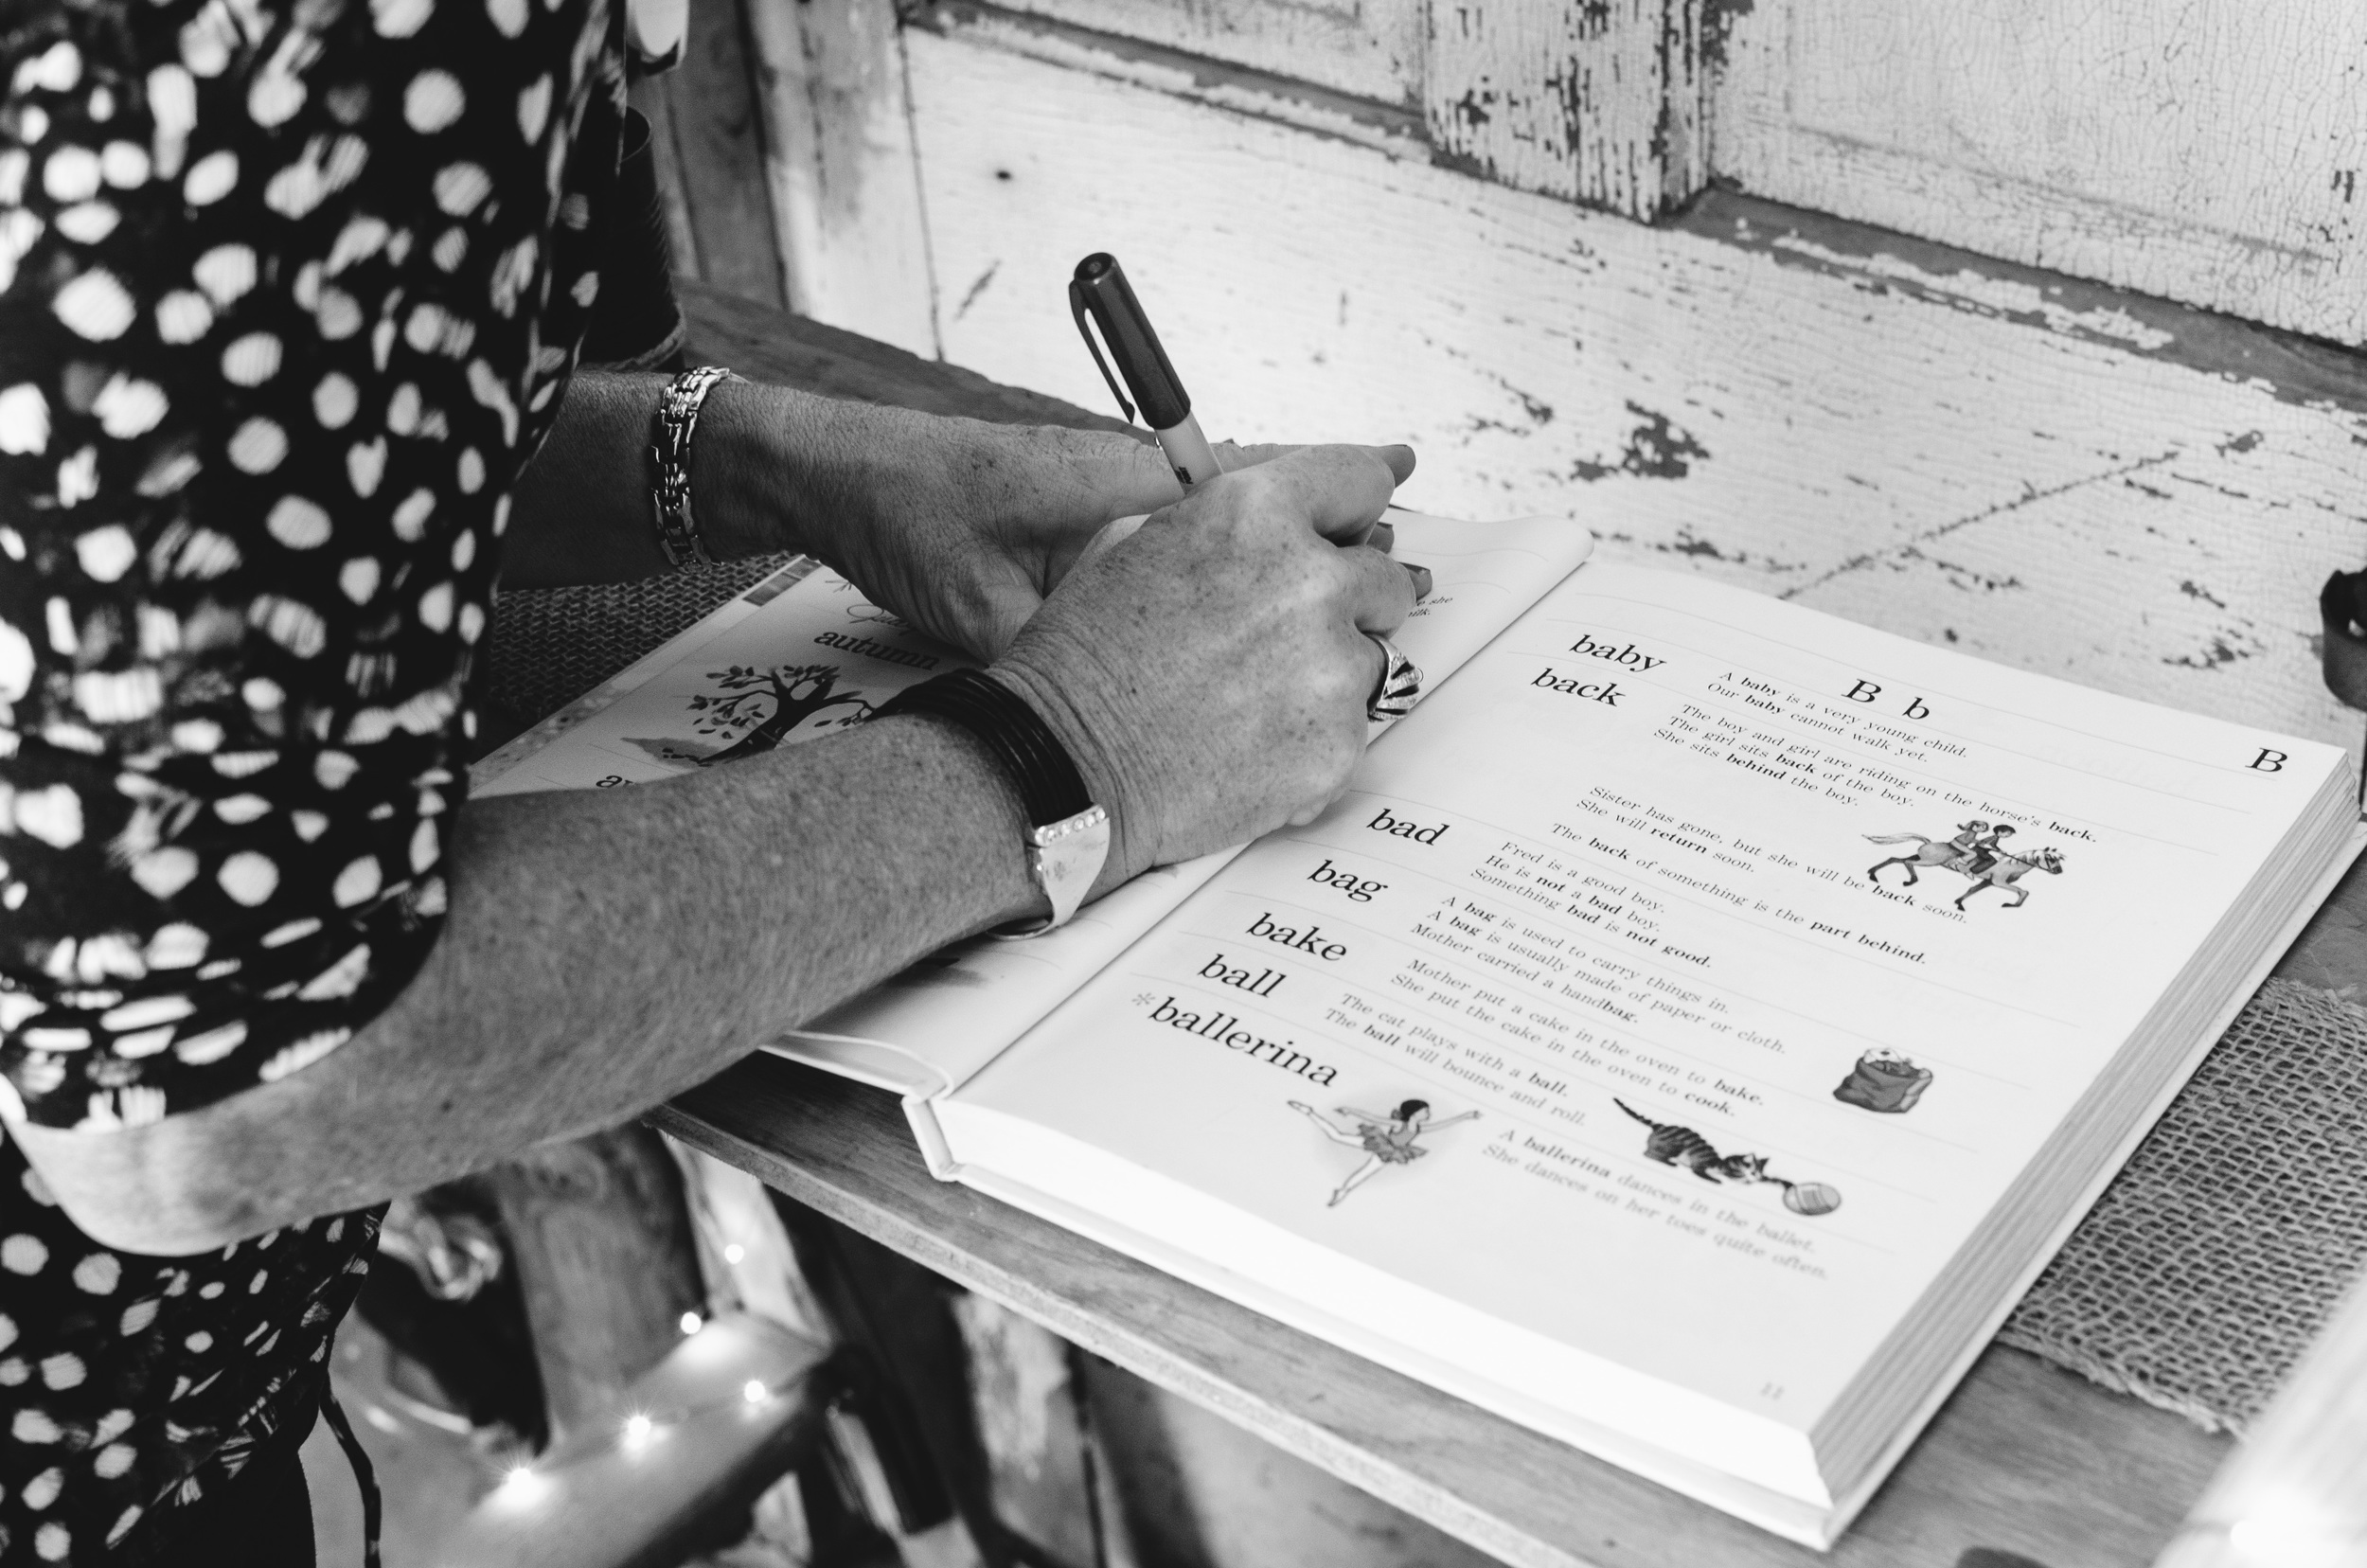 autumn
she
milk.
B
B b
baby
A baby is a very young child.
Our baby cannot walk yet.
back
The boy and girl are riding on the horse's back.
The girl sits back of the boy.
She sits behind the boy.
Sister has gone, but she will be back soon.
She will return soon.
The back of something is the part behind.
bad
Fred is a good boy.
He is not a bad boy.
Something bad is not good.
bag
A bag is used to carry things in.
A bag is usually made of paper or cloth.
Mother carried a handbag.
bake
Mother put a cake in the oven to bake.
She put the cake in the oven to cook.
ball
The cat plays with a ball.
The ball will bounce and roll.
*ballerina
A ballerina dances in the ballet.
She dances on her toes quite often.
11